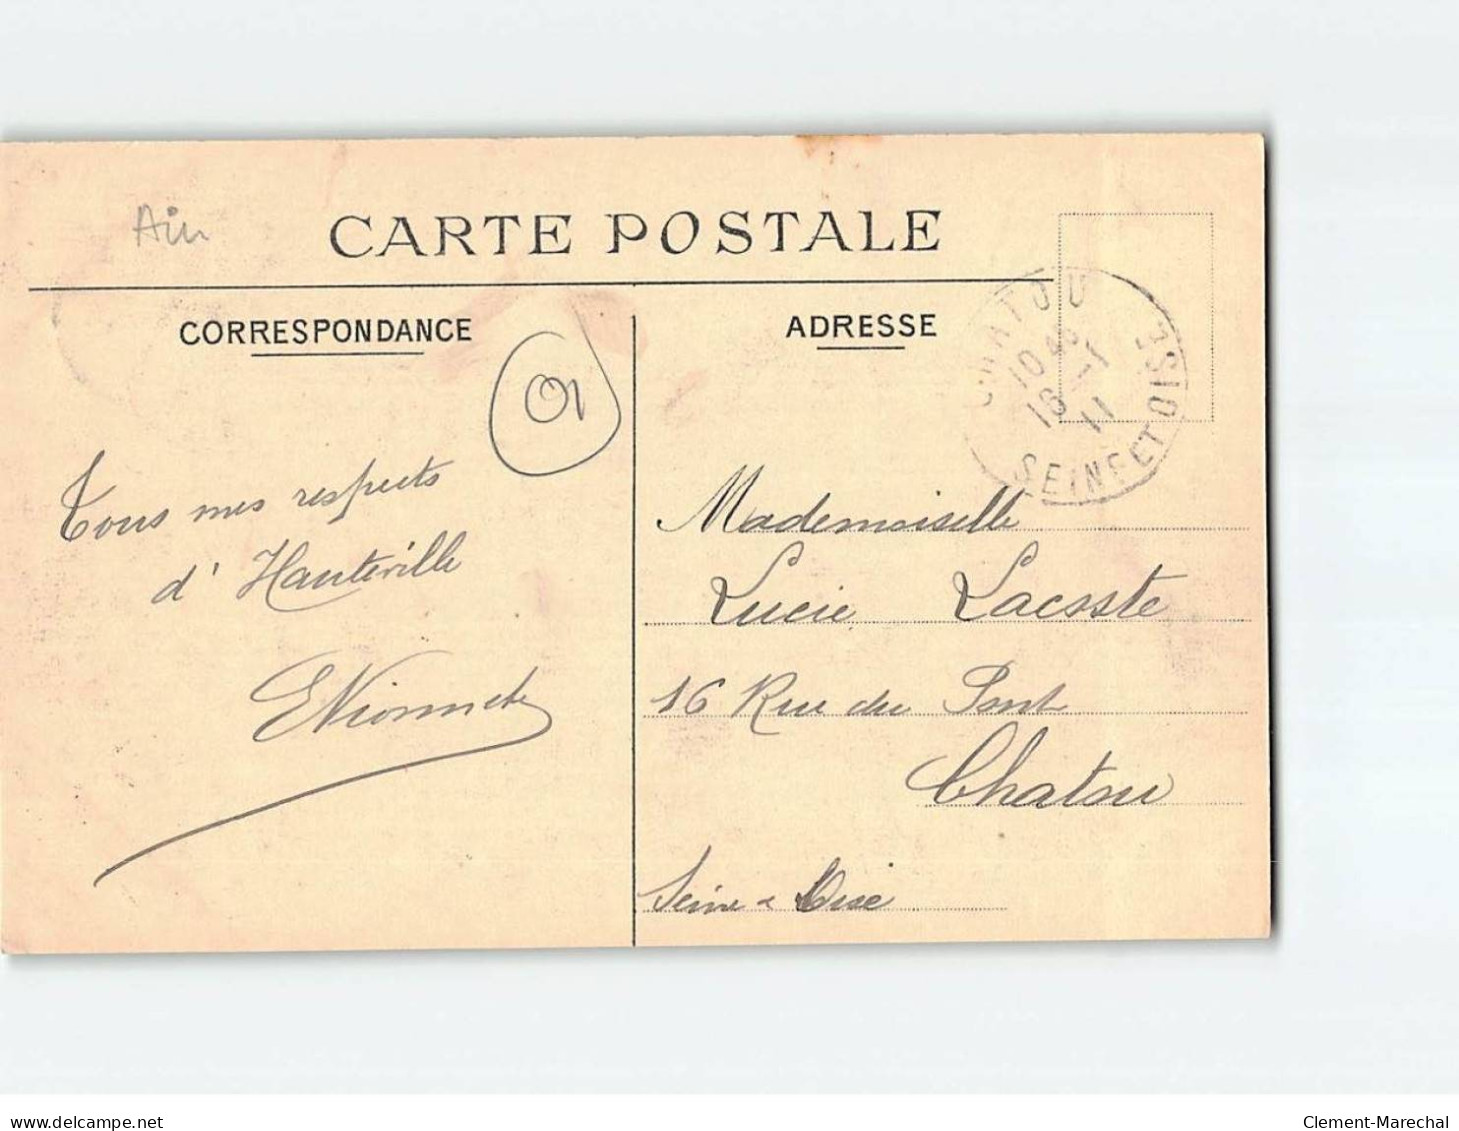 Ain
CARTE POSTALE
CORRESPONDANCE
ADRESSE
01
CHATOU
10 45
16 - 1
11
SEINE ET OISE
Tous mes respects
d'Hauteville
Mademoiselle
Lucie Lacoste
16 Rue du Pont
Chatou
Seine & Oise
www.delcampe.net
Clement-Marechal